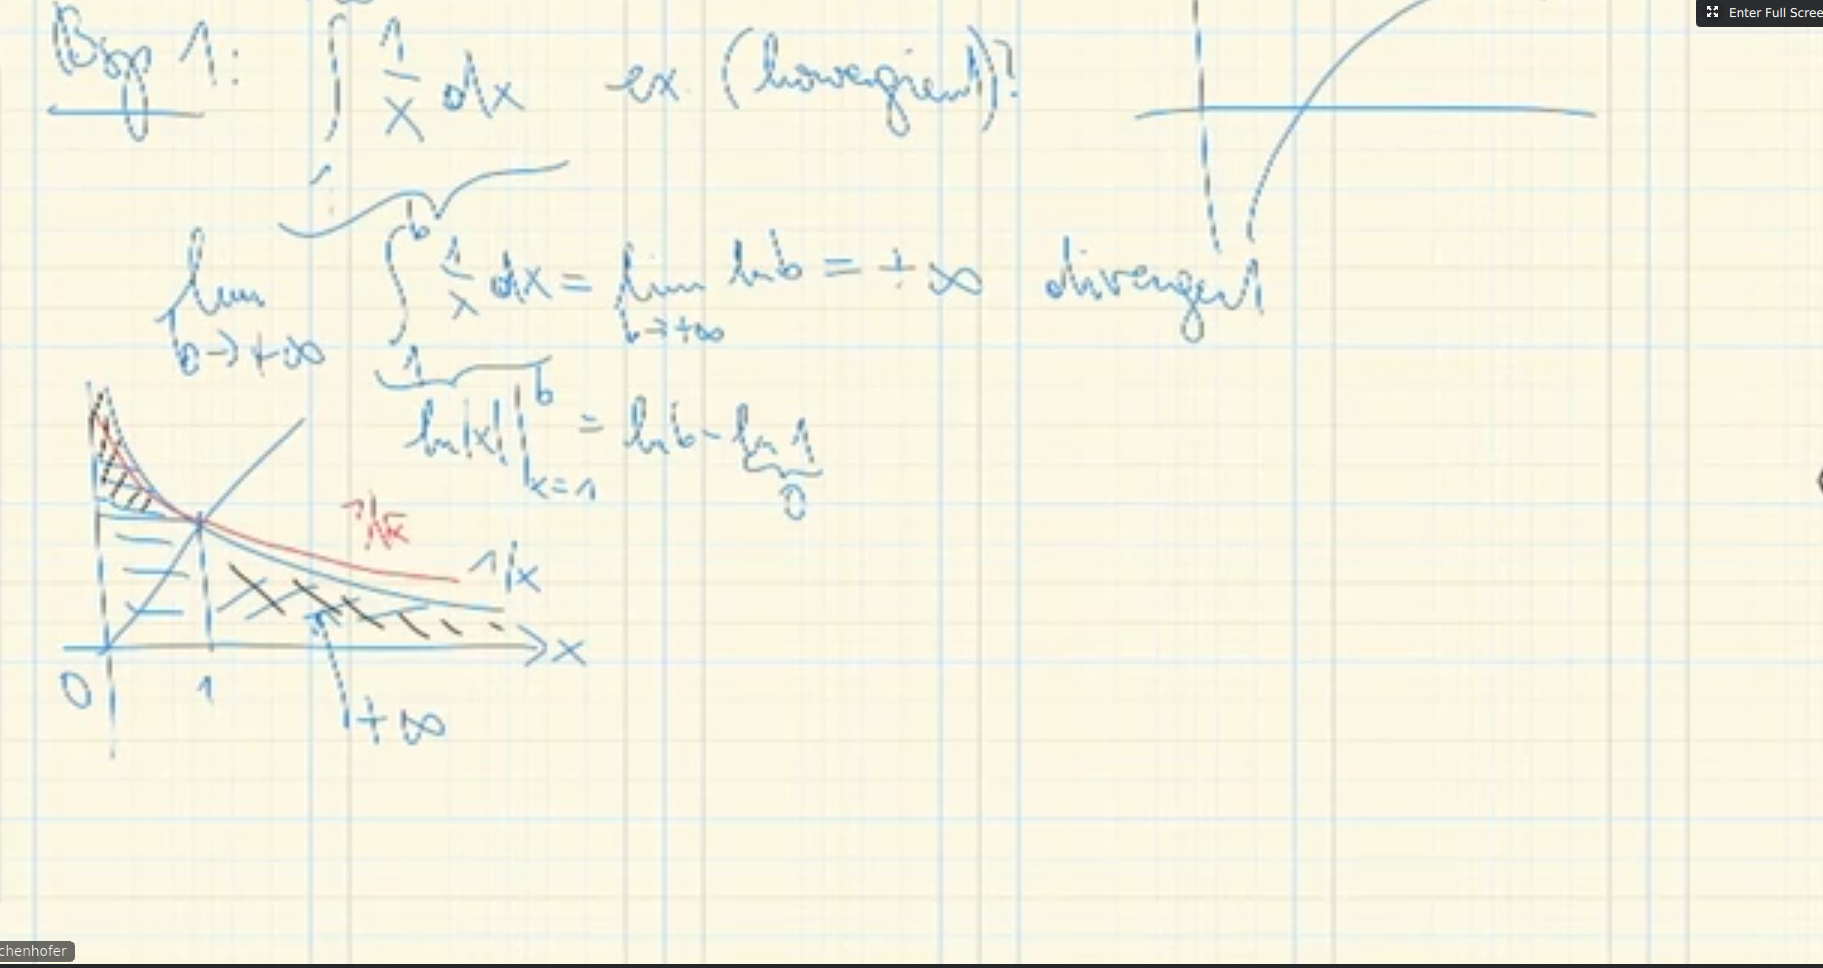 Bsp 1: ∫₁^∞ 1/x dx ex. (konvergient)?
lim b→+∞ ∫₁^b 1/x dx = lim b→+∞ ln b = +∞ divergent
ln|x| |_{x=1}^b = ln b - ln 1
0
1/√x
1/x
x
0 1
+∞
Enter Full Scree
chenhofer